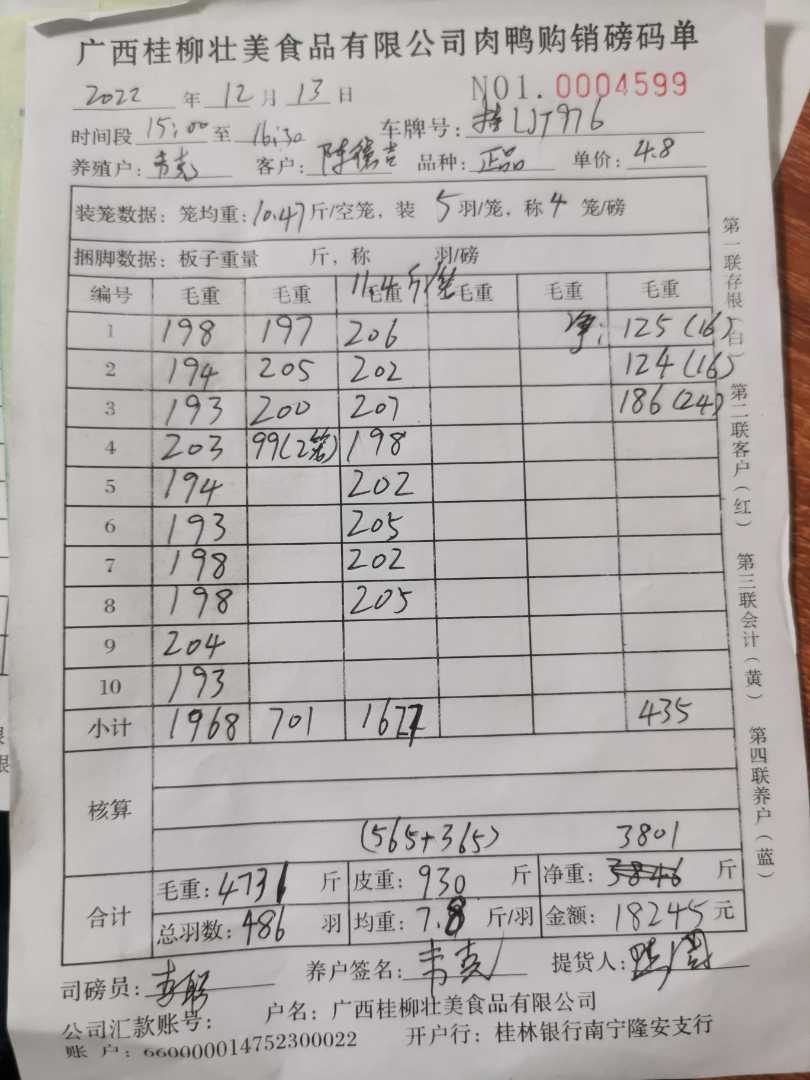 广西桂柳壮美食品有限公司肉鸭购销磅码单
2022 年 12 月 13 日 NO1. 0004599
时间段 15:00 至 16:30 车牌号: 桂LJT976
养殖户: 韦克 客户: 陈德吉 品种: 正品 单价: 4.8
装笼数据: 笼均重: 10.47 斤/空笼, 装 5 羽/笼, 称 4 笼/磅
捆脚数据: 板子重量 斤, 称 羽/磅
11.4斤/笼
编号 毛重 毛重 毛重 毛重 毛重 毛重
1 198 197 206 净: 125(16)
2 194 205 202 124(16)
3 193 200 207 186(24)
4 203 99(2笼) 198
5 194 202
6 193 205
7 198 202
8 198 205
9 204
10 193
小计 1968 701 1627 435
核算
(565+365) 3801
合计 毛重: 4731 斤 皮重: 930 斤 净重: 3846 斤
总羽数: 486 羽 均重: 7.8 斤/羽 金额: 18245 元
司磅员: 养户签名: 韦克 提货人:
公司汇款账号: 户名: 广西桂柳壮美食品有限公司
账 户: 660000014752300022 开户行: 桂林银行南宁隆安支行
第一联存根(白) 第二联客户(红) 第三联会计(黄) 第四联养户(蓝)